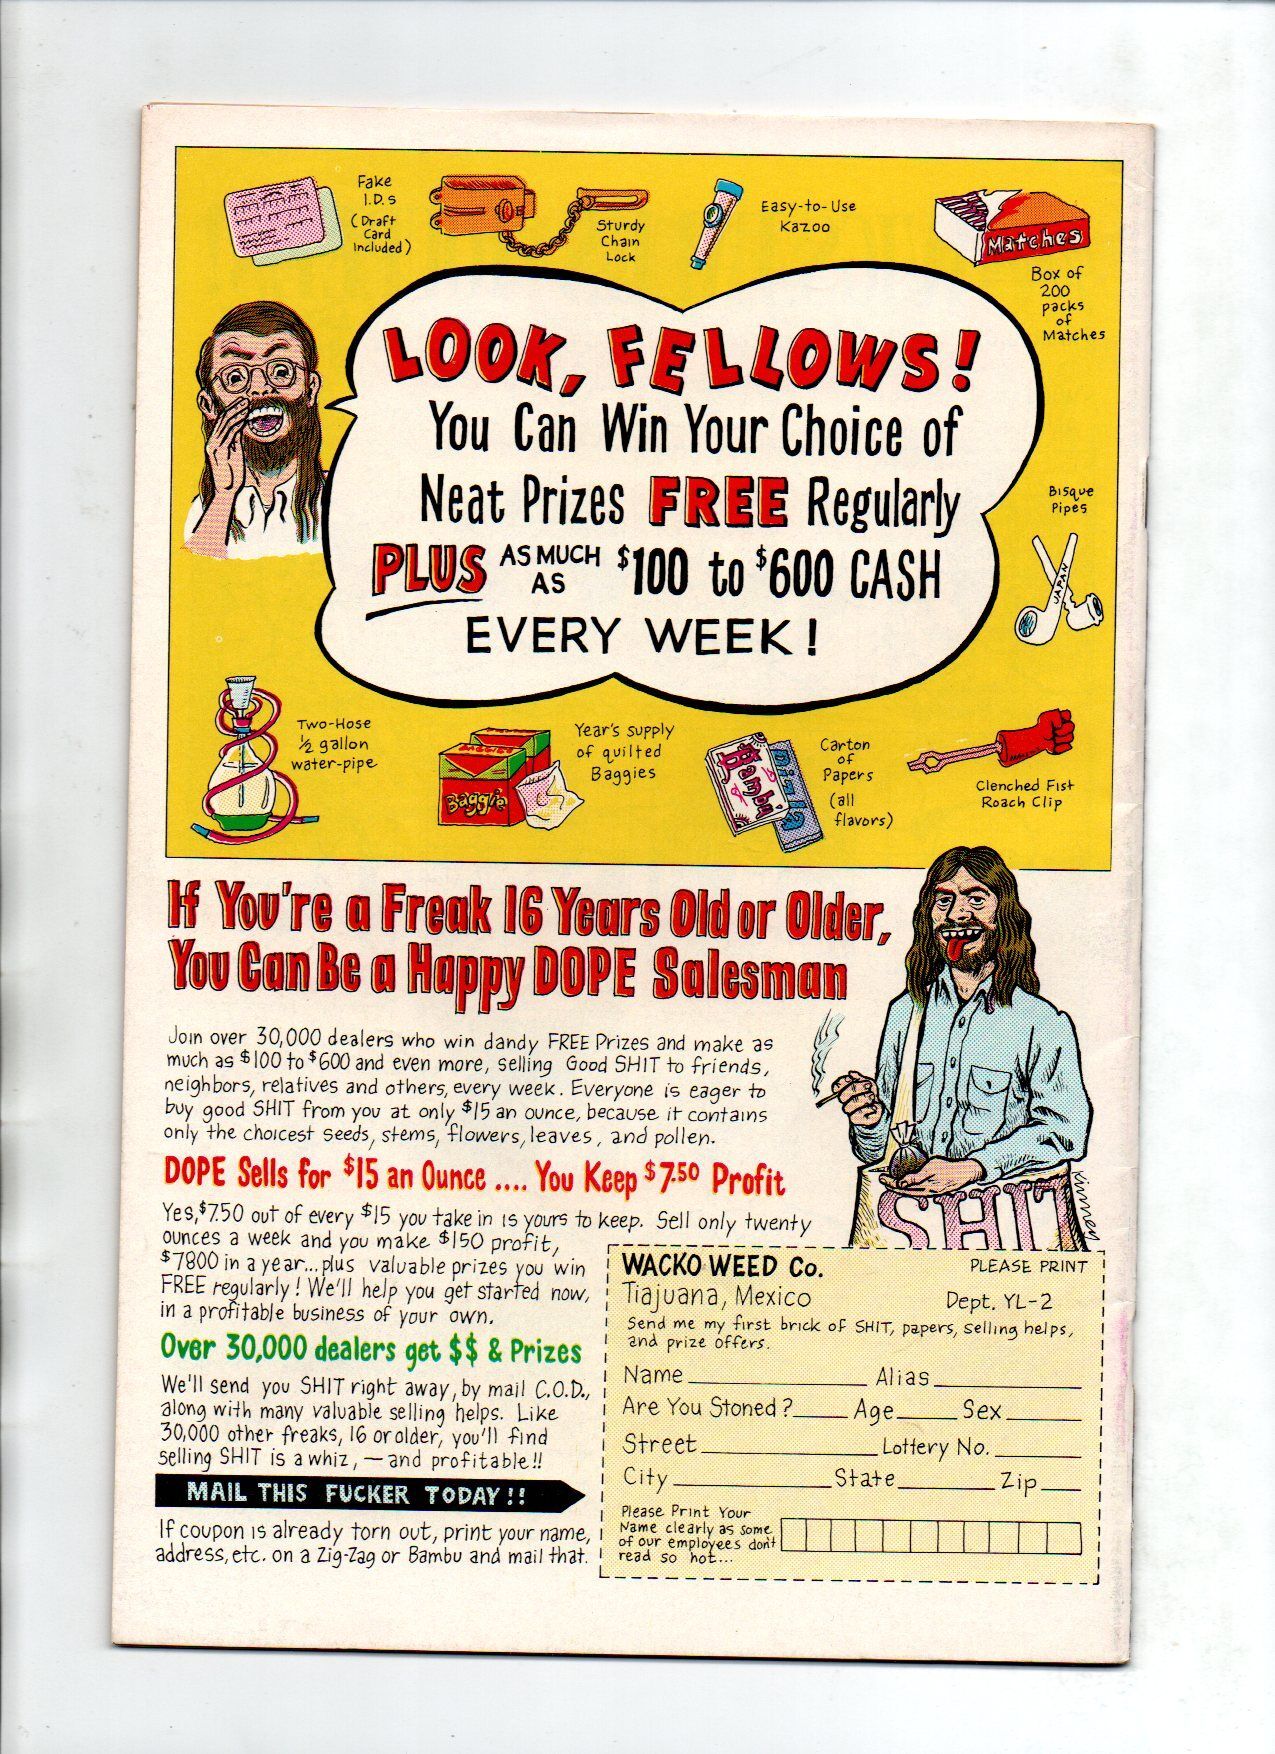 Fake
I.D.s
(Draft
Card
Included)
Sturdy
Chain
Lock
Easy-to-Use
Kazoo
Matches
Box of
200
packs
of
Matches
LOOK, FELLOWS!
You Can Win Your Choice of
Neat Prizes FREE Regularly
PLUS AS MUCH AS $100 to $600 CASH
EVERY WEEK!
Bisque
Pipes
JAPAN
Two-Hose
½ gallon
water-pipe
Baggie
Year's supply
of quilted
Baggies
Bambu
Carton
of
Papers
(all
flavors)
Clenched Fist
Roach Clip
If You're a Freak 16 Years Old or Older,
You Can Be a Happy DOPE Salesman
Join over 30,000 dealers who win dandy FREE Prizes and make as
much as $100 to $600 and even more, selling Good SHIT to friends,
neighbors, relatives and others, every week. Everyone is eager to
buy good SHIT from you at only $15 an ounce, because it contains
only the choicest seeds, stems, flowers, leaves, and pollen.
DOPE Sells for $15 an Ounce .... You Keep $7.50 Profit
Yes, $7.50 out of every $15 you take in is yours to keep. Sell only twenty
ounces a week and you make $150 profit,
$7800 in a year... plus valuable prizes you win
FREE regularly! We'll help you get started now,
in a profitable business of your own.
Over 30,000 dealers get $$ & Prizes
We'll send you SHIT right away, by mail C.O.D.,
along with many valuable selling helps. Like
30,000 other freaks, 16 or older, you'll find
selling SHIT is a whiz, — and profitable!!
MAIL THIS FUCKER TODAY!!
If coupon is already torn out, print your name,
address, etc. on a Zig-Zag or Bambu and mail that.
SHIT
Kinney
WACKO WEED Co. PLEASE PRINT
Tiajuana, Mexico Dept. YL-2
Send me my first brick of SHIT, papers, selling helps,
and prize offers.
Name Alias
Are You Stoned? Age Sex
Street Lottery No.
City State Zip
Please Print Your
Name clearly as some
of our employees don't
read so hot...